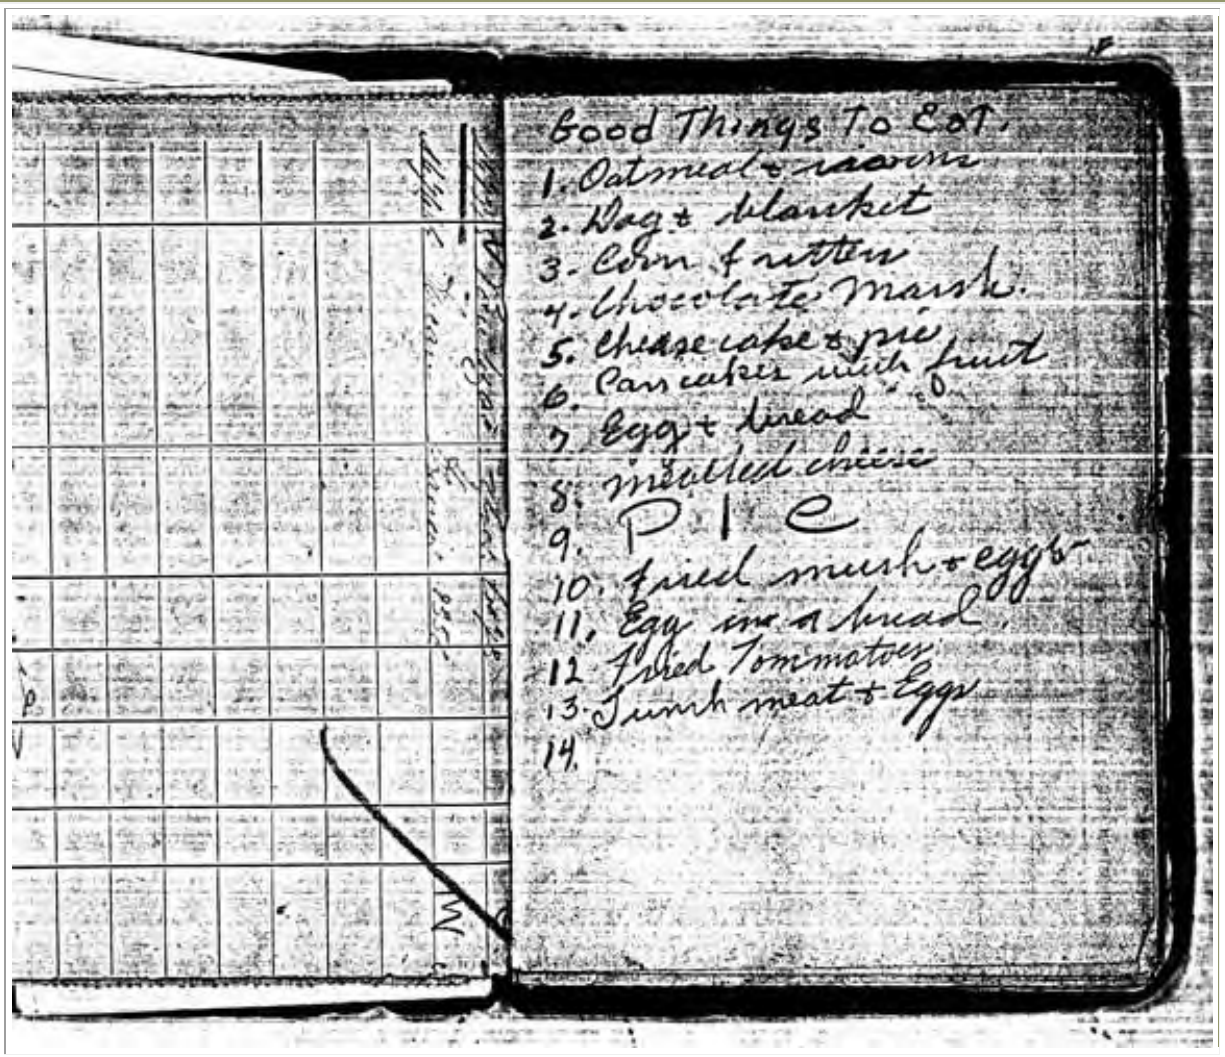 Good Things To Eat.
1. Oatmeal & raisins
2. Dog & blanket
3. Corn fritters
4. Chocolate Marsh.
5. Cheese cake & pie
6. Pancakes with fruit
7. Egg & bread
8. Mealted cheese
9. PIE
10. Fried mush & eggs
11. Egg in a bread.
12 Fried Tommatoes
13. Lunch meat & Eggs
14.